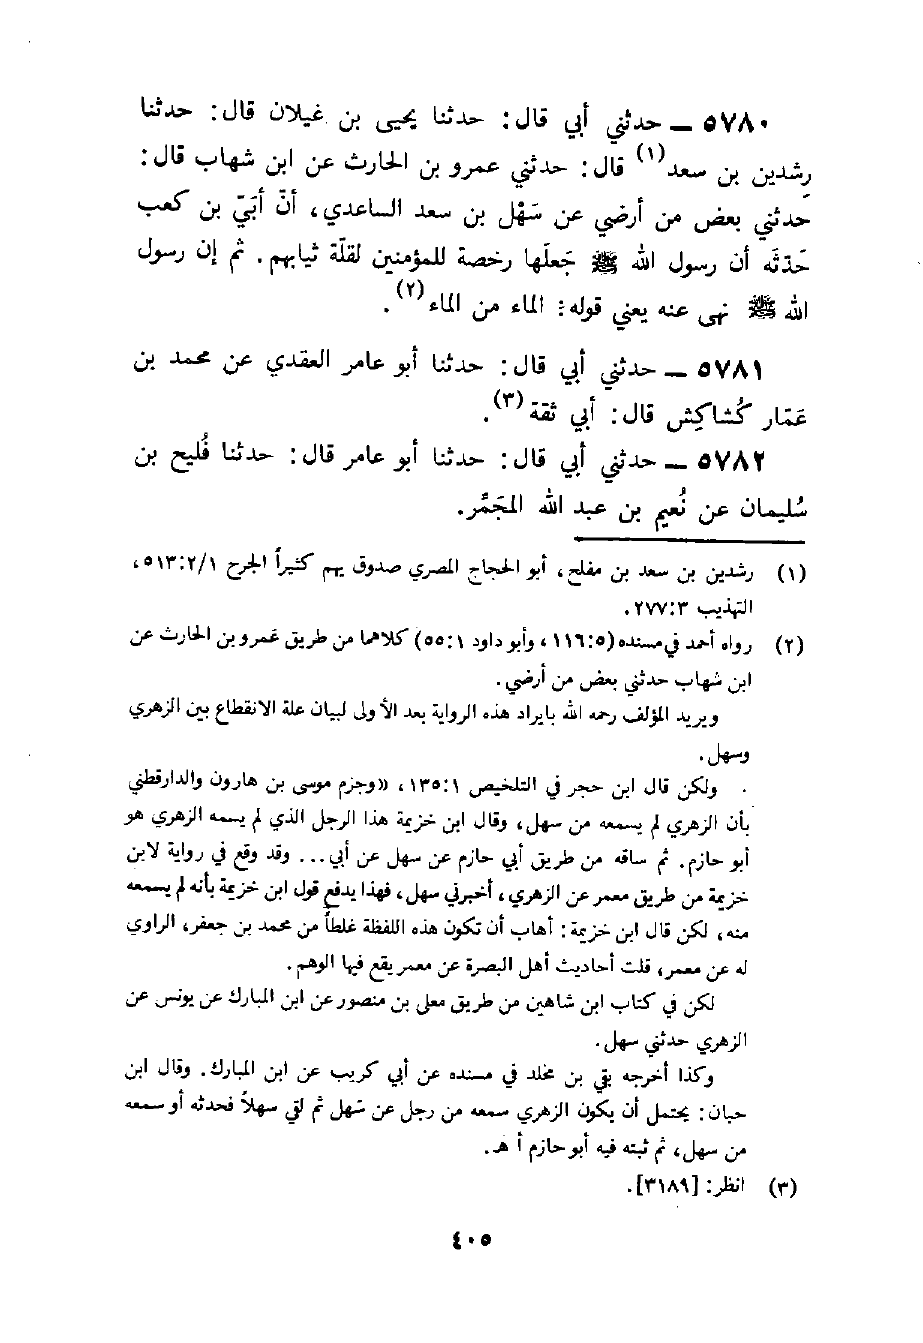 ٥٧٨٠ ــ حدثني أبي قال: حدثنا يحيى بن غيلان قال: حدثنا
رشدين بن سعد(١) قال: حدثني عمرو بن الحارث عن ابن شهاب قال:
حدثني بعض من أرضي عن سَهْل بن سعد الساعدي، أنّ أُبَيّ بن كعب
حَدّثَه أن رسول الله ﷺ جَعلَها رخصة للمؤمنين لقلّة ثيابهم. ثم إن رسول
الله ﷺ نهى عنه يعني قوله: الماء من الماء(٢).
٥٧٨١ ــ حدثني أبي قال: حدثنا أبو عامر العقدي عن محمد بن
عَمّار كُشاكِش قال: أبي ثقة(٣).
٥٧٨٢ ــ حدثني أبي قال: حدثنا أبو عامر قال: حدثنا فُليح بن
سُليمان عن نُعيم بن عبد الله المجَمَّر.
(١) رشدين بن سعد بن مفلح، أبو الحجاج المصري صدوق يهم كثيراً الجرح ٥١٣:٢/١،
التهذيب ٢٧٧:٣.
(٢) رواه أحمد في مسنده (١١٦:٥، وأبو داود ٥٥:١) كلاهما من طريق عمرو بن الحارث عن
ابن شهاب حدثني بعض من أرضي.
ويريد المؤلف رحمه الله بايراد هذه الرواية بعد الأولى لبيان علة الانقطاع بين الزهري
وسهل.
ولكن قال ابن حجر في التلخيص ١٣٥:١، «وجزم موسى بن هارون والدارقطني
بأن الزهري لم يسمعه من سهل، وقال ابن خزيمة هذا الرجل الذي لم يسمه الزهري هو
أبو حازم. ثم ساقه من طريق أبي حازم عن سهل عن أبي... وقد وقع في رواية لابن
خزيمة من طريق معمر عن الزهري، أخبرني سهل، فهذا يدفع قول ابن خزيمة بأنه لم يسمعه
منه، لكن قال ابن خزيمة: أهاب أن تكون هذه اللفظة غلطاً من محمد بن جعفر، الراوي
له عن معمر، قلت أحاديث أهل البصرة عن معمر يقع فيها الوهم.
لكن في كتاب ابن شاهين من طريق معلى بن منصور عن ابن المبارك عن يونس عن
الزهري حدثني سهل.
وكذا أخرجه بقي بن مخلد في مسنده عن أبي كريب عن ابن المبارك. وقال ابن
حبان: يحتمل أن يكون الزهري سمعه من رجل عن سهل ثم لقي سهلاً فحدثه أو سمعه
من سهل، ثم ثبته فيه أبو حازم أ هـ.
(٣) انظر: [٣١٨٩].
٤٠٥